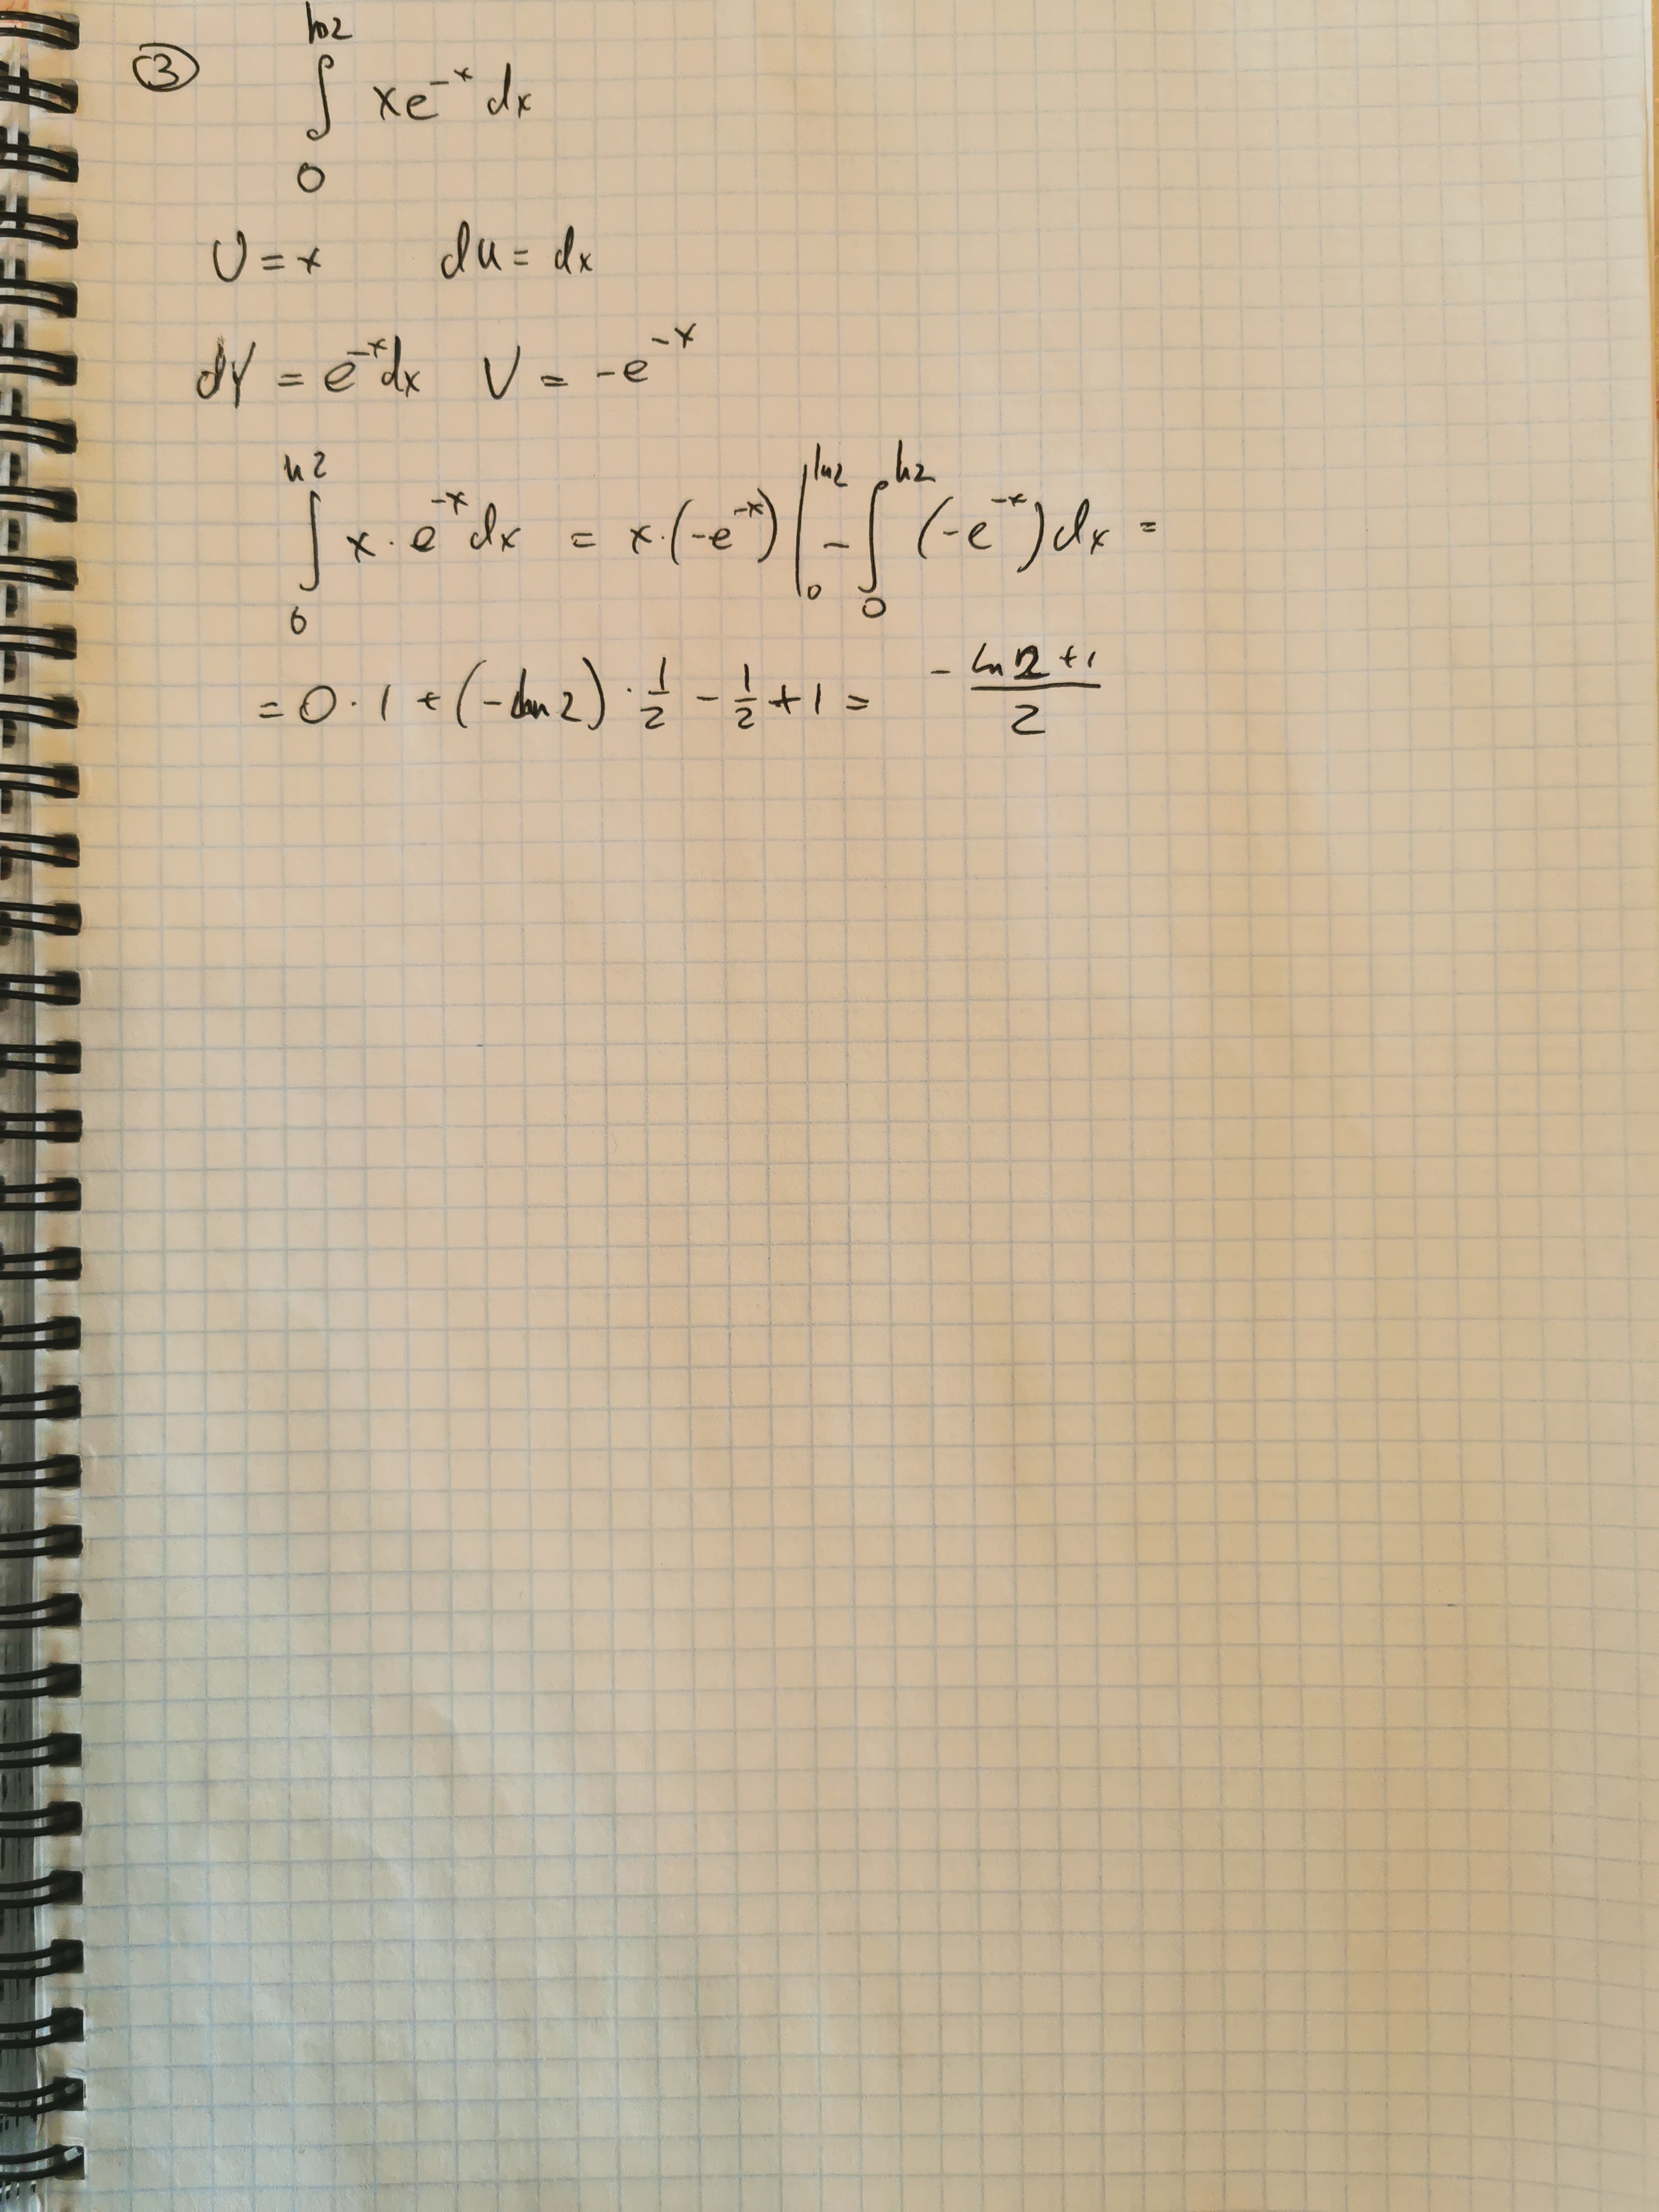 ③ ∫₀^{ln2} xe^{-x} dx
U = x du = dx
dV = e^{-x}dx V = -e^{-x}
∫₀^{ln2} x · e^{-x} dx = x·(-e^{-x}) |₀^{ln2} - ∫₀^{ln2} (-e^{-x}) dx =
= 0 · 1 + (-ln 2) · 1/2 - 1/2 + 1 = - (ln 2 + 1)/2